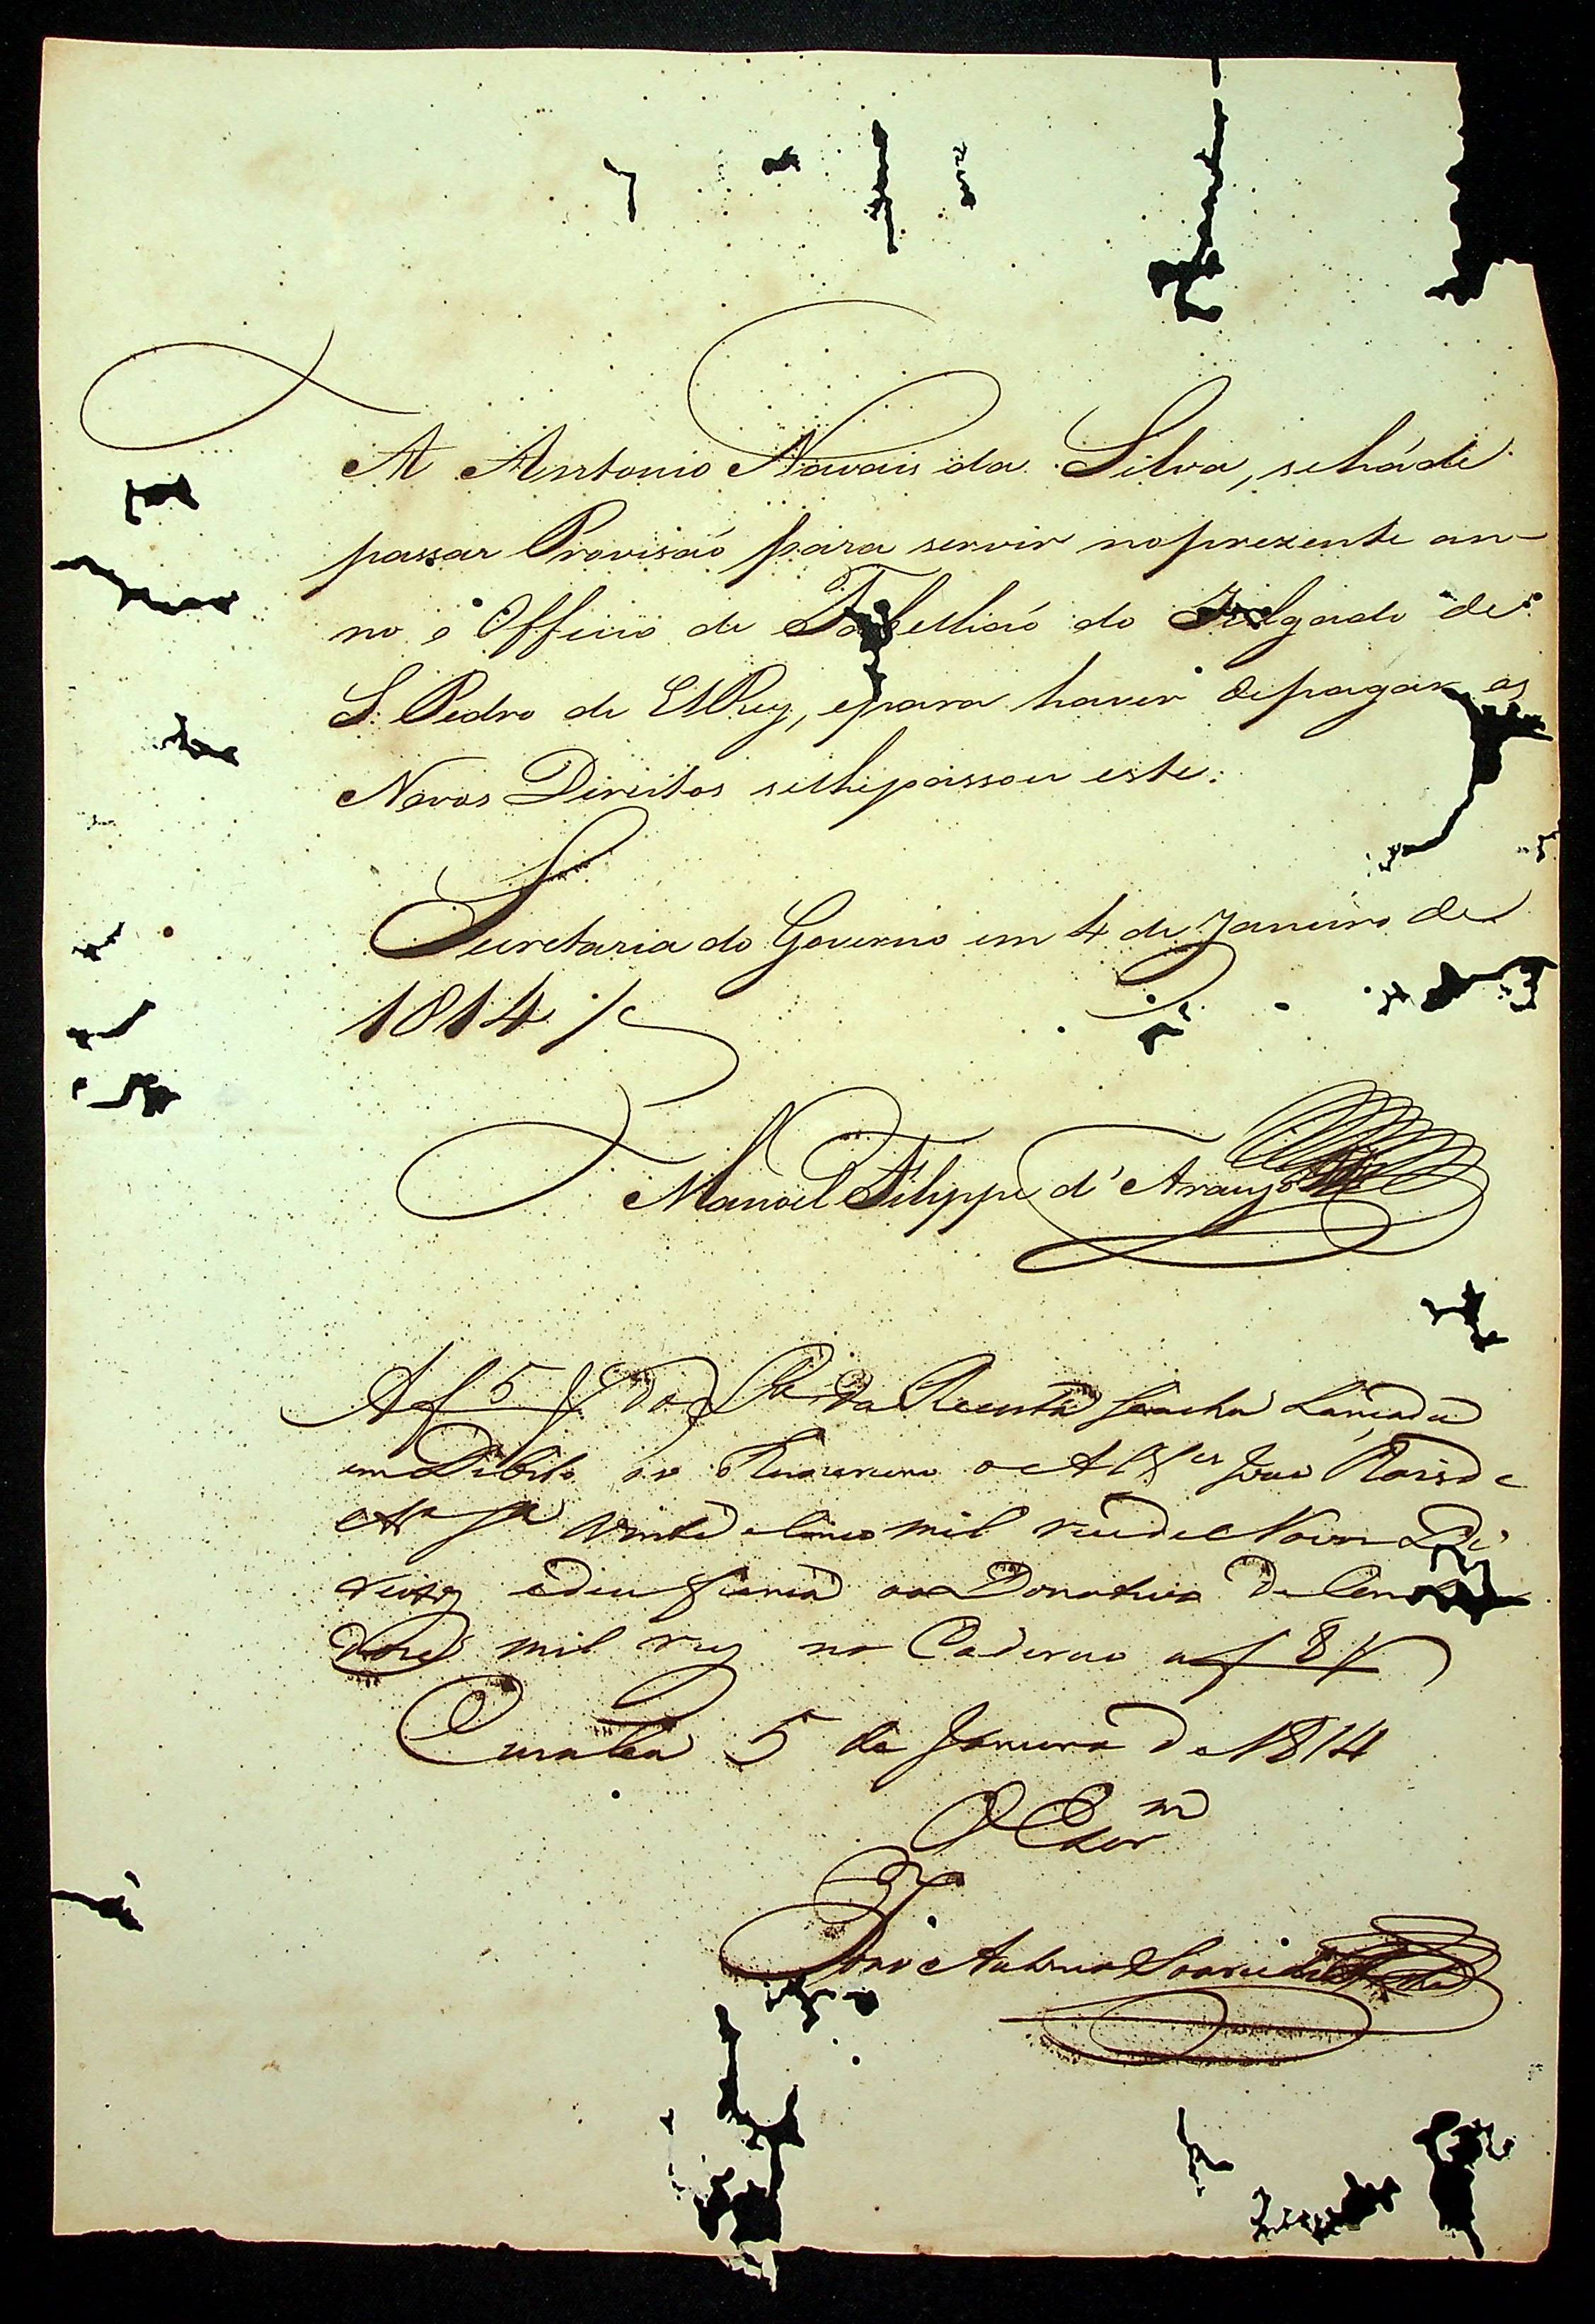 A Antonio Navais da Silva, se há de
passar Provisaõ para servir no prezente an-
no o Officio de Tabelliaõ do Julgado de
S. Pedro de ElRey, e para haver de pagar os
Novos Direitos se lhe passou este.
Secretaria do Governo em 4 de Janeiro de
1814
Manoel Filippe d'Araujo
A f 5 do da Receita fica lançada
em Debito ao Thezoureiro o João
vinte e cinco mil reis de Novos Di
reitos e deu fiança ao Donativo de
doze mil reys no Caderno a f 8
Cuiaba 5 de Janeiro de 1814
O Escr.m
João Antonio Soares